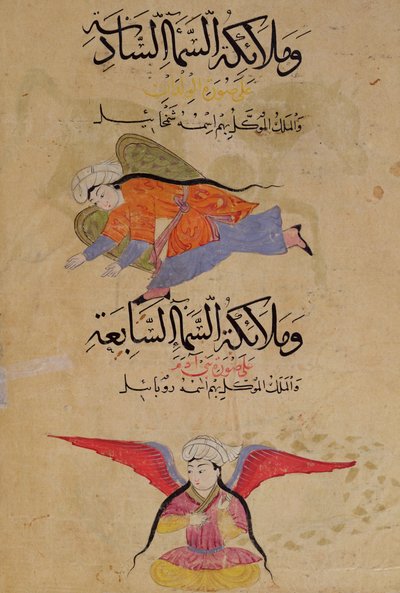 وملائكة السماء السادسة
على صورة الولدان
والملك الموكل بهم اسمه شمخائيل
وملائكة السماء السابعة
على صورة بني آدم
والملك الموكل بهم اسمه روبائيل